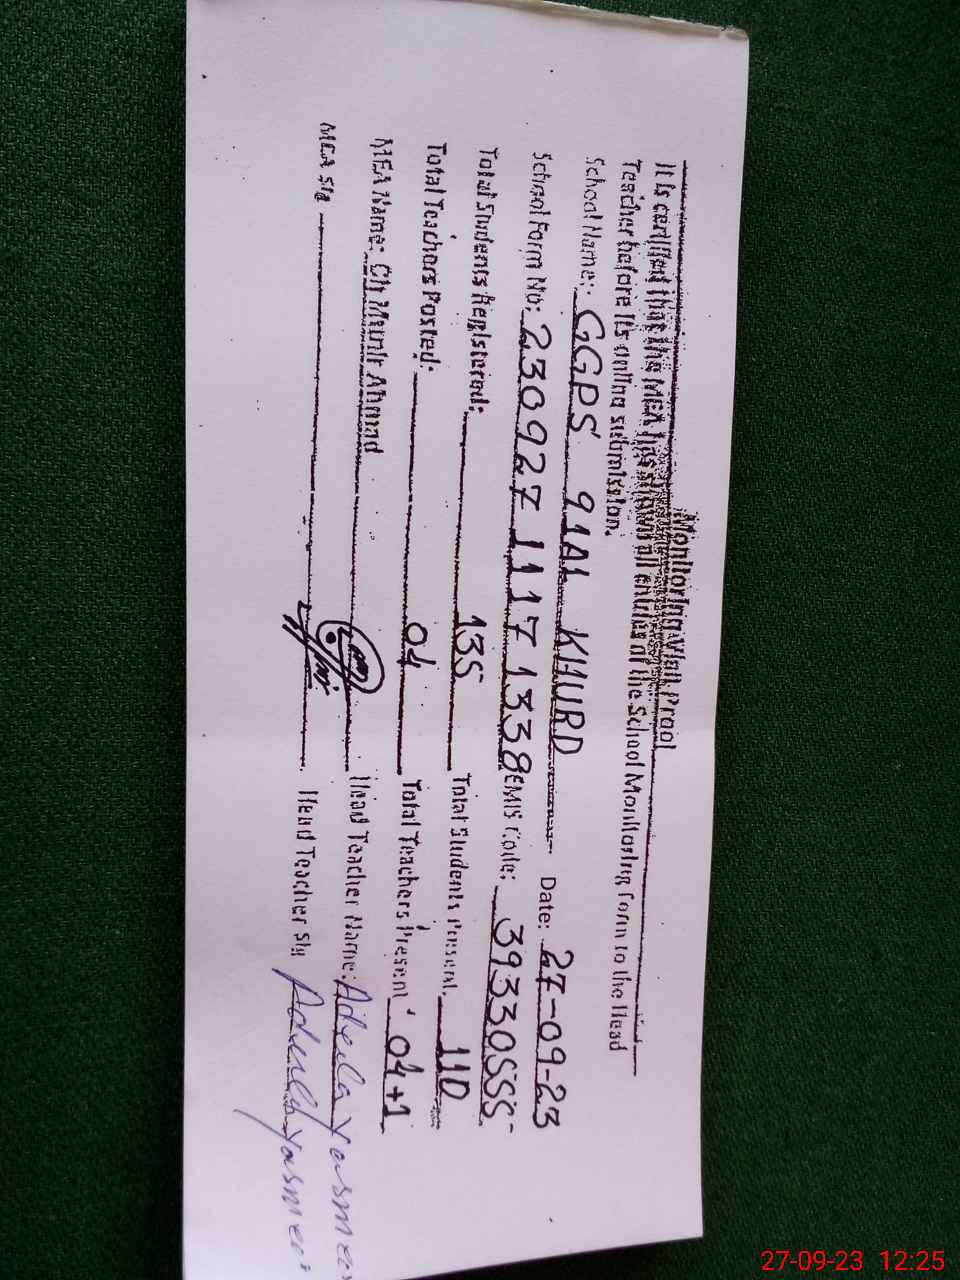 Monitoring Visit Proof
It is certified that the MEA has shown all entries of the School Monitoring form to the Head
Teacher before its online submission.
School Name: GGPS 91A1 KHURD Date: 27-09-23
School Form No: 230927 1117 1338 EMIS Code: 39330555-
Total Students Registered: 135 Total Students Present. 110
Total Teachers Posted: 04 Total Teachers Present 04+1
MEA Name: Ch Munir Ahmad Head Teacher Name: Adeela Yasmee
MEA Sig Head Teacher Sig Adeela Yasmee
27-09-23 12:25